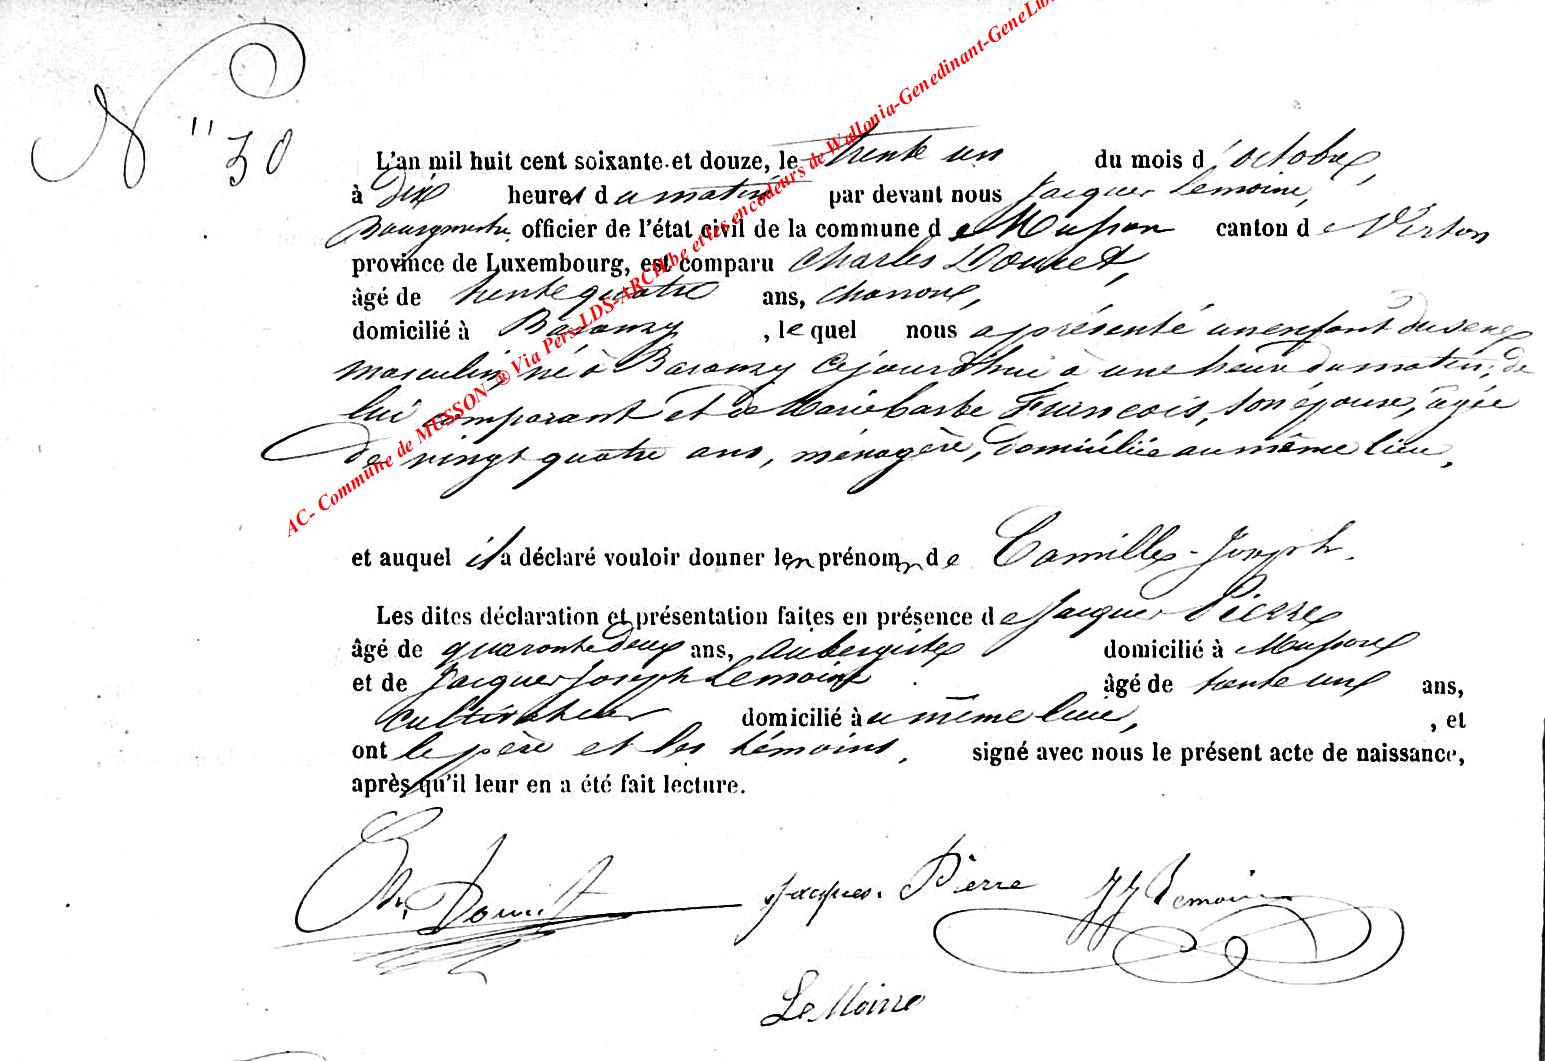 N° 50
AC- Commune de MUSSON ® Via Pers-LDS-ARCH.be et les encodeurs de Wallonia-Genedinant-GeneLux
L'an mil huit cent soixante et douze, le trente un du mois d'octobre,
à dix heures du matin par devant nous Jacques Lemoine,
Bourgmestre officier de l'état civil de la commune de Musson canton de Virton
province de Luxembourg, est comparu Charles Douret,
âgé de trente quatre ans, charron,
domicilié à Baranzy, lequel nous a présenté un enfant du sexe
masculin, né à Baranzy cejourd'hui à une heure du matin, de
lui comparant et de Marie Barbe François, son épouse, âgée
de vingt quatre ans, ménagère, domiciliée au même lieu.
et auquel il a déclaré vouloir donner les prénoms de Camille-Joseph.
Les dites déclaration et présentation faites en présence de Jacques Pierre
âgé de quarante deux ans, aubergiste domicilié à Musson
et de Jacques Joseph Lemoine âgé de trente un ans,
cultivateur domicilié au même lieu, , et
ont le père et les témoins, signé avec nous le présent acte de naissance,
après qu'il leur en a été fait lecture.
Ch. Douret Jacques. Pierre JJ Lemoine
LeMoine